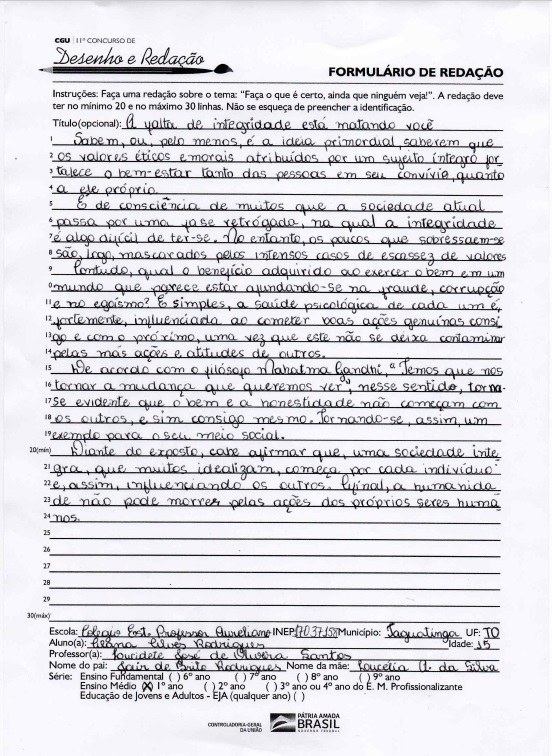 CGU | 11º CONCURSO DE
Desenho e Redação
FORMULÁRIO DE REDAÇÃO
Instruções: Faça uma redação sobre o tema: "Faça o que é certo, ainda que ninguém veja!". A redação deve
ter no mínimo 20 e no máximo 30 linhas. Não se esqueça de preencher a identificação.
Título(opcional): A falta de integridade está matando você
1 Sabem, ou, pelo menos, é a ideia primordial, saberem que
2 os valores éticos e morais atribuídos por um sujeito íntegro for
3 talece o bem-estar tanto das pessoas em seu convívio, quanto
4 a ele próprio.
5 É de consciência de muitos que a sociedade atual
6 passa por uma fase retrógada, na qual a integridade
7 é algo difícil de ter-se. No entanto, os poucos que sobressaem-se
8 são, logo, mascarados pelos intensos casos de escassez de valores
9 Contudo, qual o benefício adquirido ao exercer o bem em um
0 mundo que parece estar afundando-se na fraude, corrupção
11 e no egoísmo? É simples, a saúde psicológica de cada um é,
12 fortemente, influenciada ao cometer boas ações genuínas consi
13 go e com o próximo, uma vez que este não se deixa contaminar
14 pelas más ações e atitudes de outros.
15 De acordo com o filósofo Mahatma Gandhi, "Temos que nos
16 tornar a mudança que queremos ver", nesse sentido, torna-
17 se evidente que o bem e a honestidade não começam com
18 os outros, e sim consigo mesmo. Tornando-se, assim, um
19 exemplo para o seu meio social.
20(min) Diante do exposto, cabe afirmar que, uma sociedade ínte
21 gra, que muitos idealizam, começa por cada indivíduo
22 e, assim, influenciando os outros. Afinal, a humanida
23 de não pode morrer pelas ações dos próprios seres huma
24 nos.
25
26
27
28
29
30(máx)
Escola: Colégio Est. Professor Aureliano INEP: 17037158 Município: Taguatinga UF: TO
Aluno(a): Silva Rodrigues Idade: 15
Professor(a): José de Oliveira Santos
Nome do pai: Jair de Brito Rodrigues Nome da mãe: da Silva
Série: Ensino Fundamental ( ) 6º ano ( ) 7º ano ( ) 8º ano ( ) 9º ano
Ensino Médio (X) 1º ano ( ) 2º ano ( ) 3º ano ou 4º ano do E. M. Profissionalizante
Educação de Jovens e Adultos - EJA (qualquer ano) ( )
CONTROLADORIA-GERAL
DA UNIÃO
PÁTRIA AMADA
BRASIL
GOVERNO FEDERAL